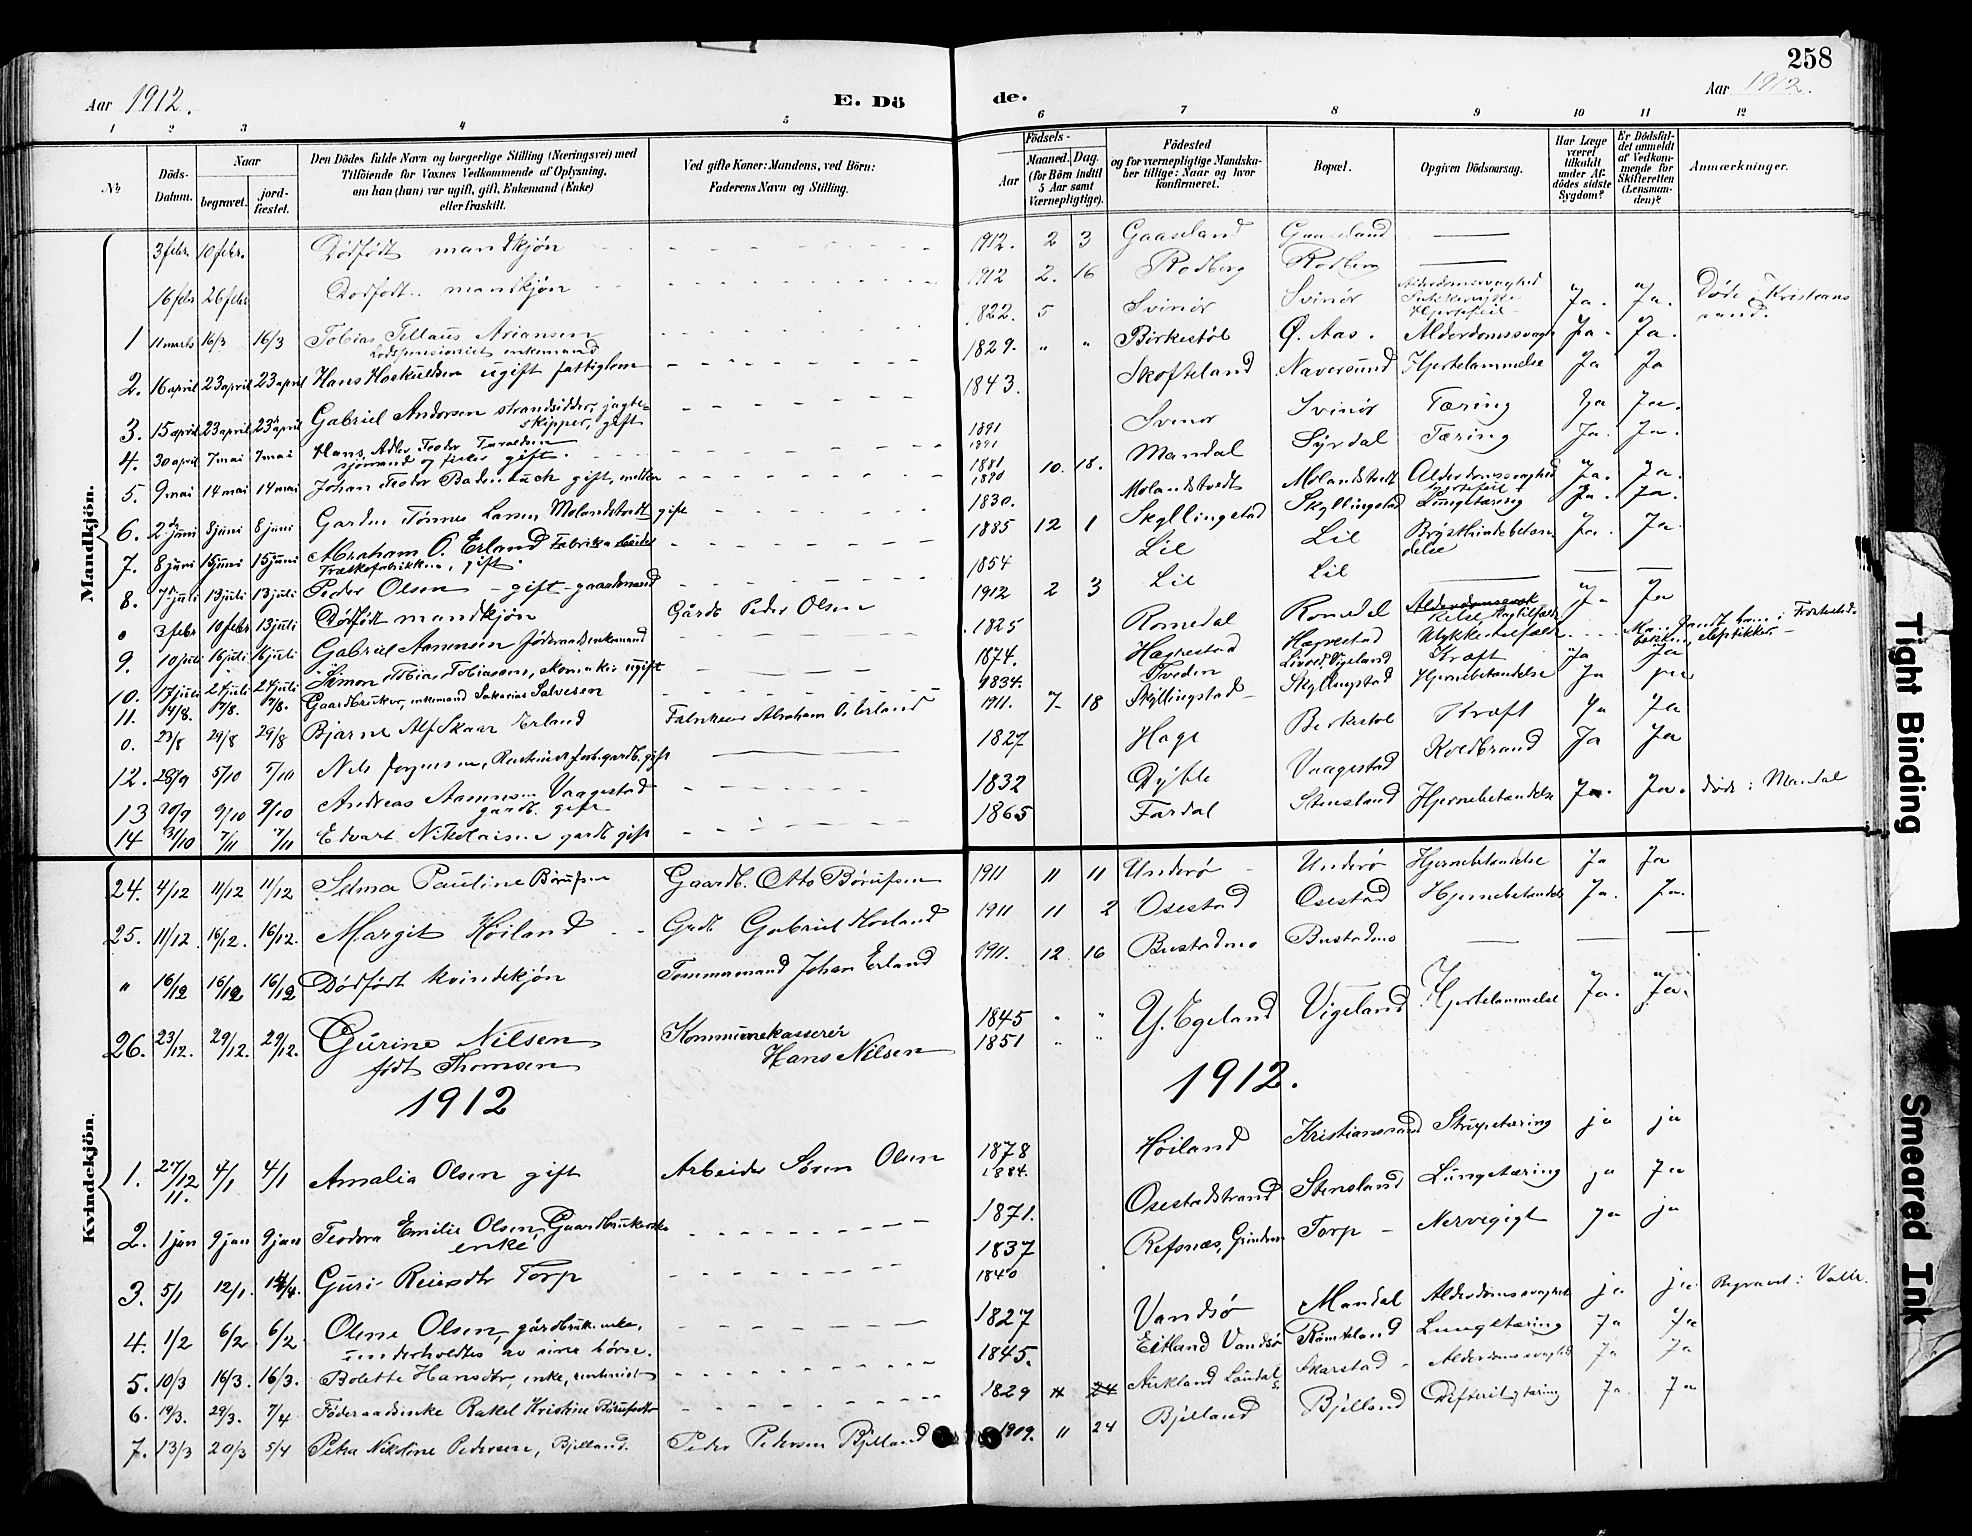 258
Aar 1912.
E. Dö
de.
Aar 1912.
1 2 3 4 5 6 7 8 9 10 11 12
No
Döds-Datum.
Naar
begravet.
jord-fæstet.
Den Dödes fulde Navn og borgerlige Stilling (Næringsvei) med
Tilföiende for Voxnes Vedkommende af Oplysning,
om han (hun) var ugift, gift, Enkemand (Enke)
eller fraskilt.
Ved gifte Koner: Mandens, ved Börn:
Faderens Navn og Stilling.
Födsels-
Aar
Maaned. Dag.
(for Börn indtil
5 Aar samt
Værnepligtige).
Födested
og for værnepligtige Mandska-
ber tillige: Naar og hvor
konfirmeret.
Bopæl.
Opgiven Dödsaarsag.
Har Læge
været
tilkaldt
under Af-
dödes sidste
Sygdom?
Er Dödsfal-
det anmeldt
af Vedkom-
mende for
Skifteretten
(Lensman-
den)?
Anmærkninger.
Mandkjön.
3 febr. 10 febr. Dödfödt mandkjön 1912. 2 3 Gaaseland Gaaseland
16 febr 26 febr Dödfödt mandkjön 1912 2. 16 Rodberg Rodberg
1 11 marts 16/3 16/3 Tobias Tellaus Ariansen 1822. 5 Svinör Svinör Alderdomssvaghed Hjertefeil Ja. Ja. Döde i Kristians
sand.
Lodspensionist enkemand
2. 16 april 23 april 23 april Hans Hoskuldsen ugift fattiglem 1829. " " Birkestöl Ö. Aas. Alderdomssvagh Ja. Ja.
3. 15 april 23 april 23 april Gabriel Andersen strandsidder, jagte-
skipper, gift 1843. Skofteland Naversund Hjertelammelse Ja Ja
4. 30 april 7 mai 7 mai Hans Adler Teodor
sjömand og fisker gift. 1891 Svinör Svinör Tæring Ja Ja.
5. 9 mai 14 mai 14 mai Johan Teodor gift 1881 10. 18. Mandal Syrdal Tæring Ja. Ja.
6. 2 juni 8 juni 8 juni Gardm Tönnes Larsen Molandstvedt gift 1830. Molandstvedt Molandstvedt Alderdomssvaghed Hjertefeil Ja. Ja.
7. 8 juni 15 juni 15 juni Abraham O. Erland
gift. 1885 12 1 Skyllingstad Skyllingstad Lungetæring Ja. Ja.
8. 7 juli 13 juli 13 juli Peder Olsen - gift - gaardmand 1854 Lil Lil Brysthindebetæn
delse Ja. Ja.
0 3 febr 10 febr 13 juli Dödfödt mandkjön Gårdb Peder Olsen 1912 2 3 Lil Lil
9. 10 juli 16 juli 16 juli Gabriel Aanensen föderaadsenkemand 1825 Romedal Romedal Ja Ja
10. 17 juli 24 juli 24 juli Simon Tobias Tobiassen, skomaker ugift 1874. Hægrestad Hægrestad Ulykkestilfælde
11. 14/8. 17/8. 17/8. Gaardbruker, enkemand Sakarias Salvesen 1834. Tveden Vigeland Kræft Ja Ja
0. 23/8 29/8 29/8 Bjarne Alf Skaar Erland Fabrikeier Abraham O. Erland 1911. 7 18 Skyllingstad Skyllingstad Hjernebetændelse Ja
12. 28/9 5/10 5/10 Nils Jörgensen, gardb. gift 1827 Hage Berkestöl Kræft Ja Ja
13 30/9 9/10 9/10 Andreas Aanensen Vaagestad
gardb. gift 1832 Dyble Vaagestad Koldbrand Ja Ja
14 31/10 7/11 7/11 Edvart Nikolaisen gardb gift 1865 Fardal Stensland Hjernebetændelse Ja. Ja. Döde i Mandal
Kvindekjön.
24. 4/12 11/12 11/12 Selma Pauline Börufsen Gaardb. Otto Börufsen 1911 11 11 Underö Underö Hjernebetændelse Ja Ja
25. 11/12 16/12. 16/12. Margit Höiland Grdb Gabriel Höiland 1911 11 2 Osestad Osestad Hjernebetændelse Ja. Ja.
" 16/12 16/12 16/12 Dödfödt kvindekjön Tömmermand Johan Erland 1911. 12 16 Bustadmo Bustadmo
26. 23/12. 29/12. 29/12. Gurine Nilsen
födt Thomsen
Kommunekasserer
Hans Nilsen
1845 " "
1851 " "
Y. Egeland Vigeland Hjertelammelse Ja. Ja.
1912
1912.
1. 27/12 11. 4/1 4/1 Amalia Olsen gift Arbeider Sören Olsen 1878
1884. Höiland Kristianssand Strupetæring ja ja
2. 1 jan 9 jan 9 jan Teodora Emilie Olsen, Gaardbrukerske
enke 1871. Osestadstrand Stensland Lungetæring ja Ja
3. 5/1 12/1. 14/8. Guri Reiersdtr Torp 1837
1840 Refsnæs, Grindem Torp - Nervegigt ja ja
4. 1/2 6/2 6/2 Olene Olsen, gårdbruk. enke,
underholdtes av sine börn. 1827 Vandsö Mandal Alderdomssvaghed ja ja Begravet i Valle.
5. 10/3 16/3. 16/3. Bolette Hansdtr, enke, 1845. Eitland Vandsö Römteland Lungetæring Ja Ja
6. 19/3. 29/3. 7/4 Föderaadsenke Rakel Kristine Börufsdtr 1829 11 24 Aukland Laudal Skarstad - Alderdomssvaghed Ja Ja
7. 13/3 20/3 5/4 Petra Nikoline Pedersen, Bjelland. Peder Pedersen Bjelland 1909. 11 24 Bjelland Bjelland Difterit og tæring Ja. Ja
Tight Binding
Smeared Ink